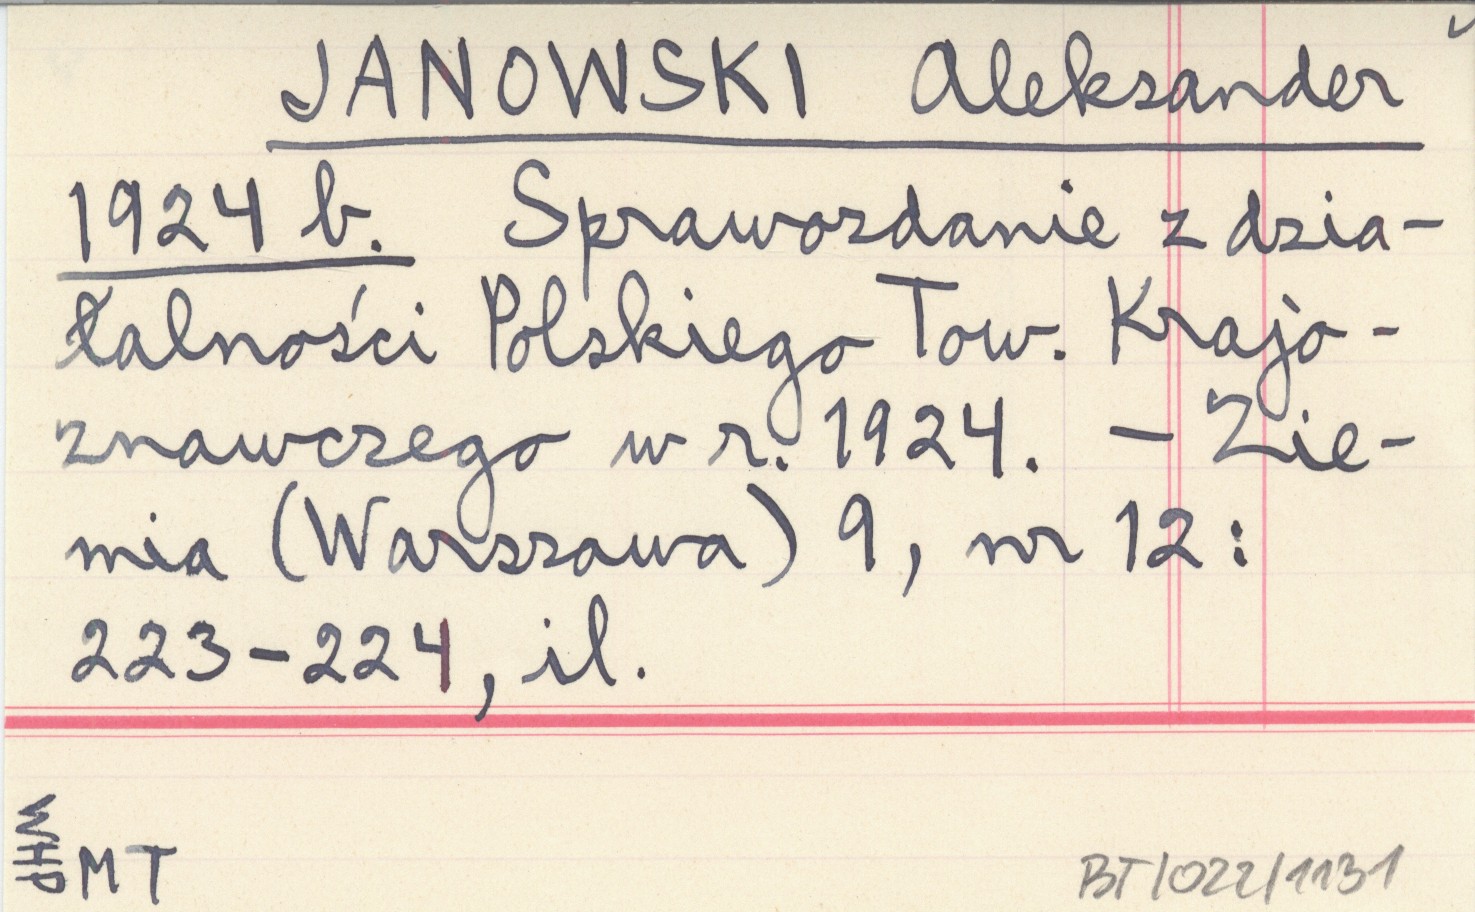 JANOWSKI Aleksander
1924 b. Sprawozdanie z dzia-
łalności Polskiego Tow. Krajo-
znawczego w r. 1924. – Zie-
mia (Warszawa) 9, nr 12:
223-224, il.
MT
BT/022/1131